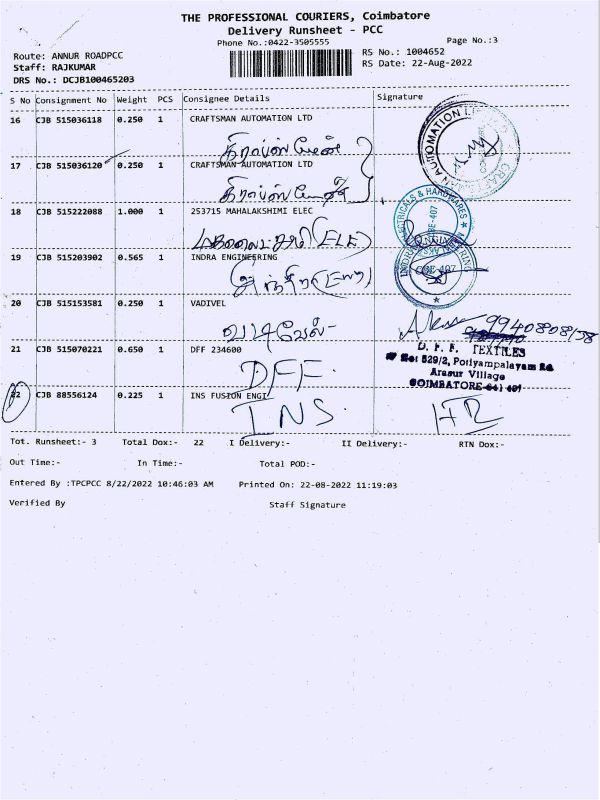 THE PROFESSIONAL COURIERS, Coimbatore
Delivery Runsheet - PCC
Phone No.:0422-3505555
Page No.:3
Route: ANNUR ROADPCC
RS No.: 1004652
Staff: RAJKUMAR
RS Date: 22-Aug-2022
DRS No.: DCJB100465203
S No Consignment No Weight PCS Consignee Details Signature
16 CJB 515036118 0.250 1 CRAFTSMAN AUTOMATION LTD
17 CJB 515036120 0.250 1 CRAFTSMAN AUTOMATION LTD
18 CJB 515222088 1.000 1 253715 MAHALAKSHIMI ELEC
19 CJB 515203902 0.565 1 INDRA ENGINEERING
20 CJB 515153581 0.250 1 VADIVEL
வடிவேல்
9940808158
21 CJB 515070221 0.650 1 DFF 234600
DFF.
D. F. F. TEXTILES
529/2, Pottyampalayam
Arasur Village
COIMBATORE-641 407
22 CJB 88556124 0.225 1 INS FUSION ENGI
INS.
Tot. Runsheet:- 3 Total Dox:- 22 I Delivery:- II Delivery:- RTN Dox:-
Out Time:- In Time:- Total POD:-
Entered By :TPCPCC 8/22/2022 10:46:03 AM Printed On: 22-08-2022 11:19:03
Verified By Staff Signature